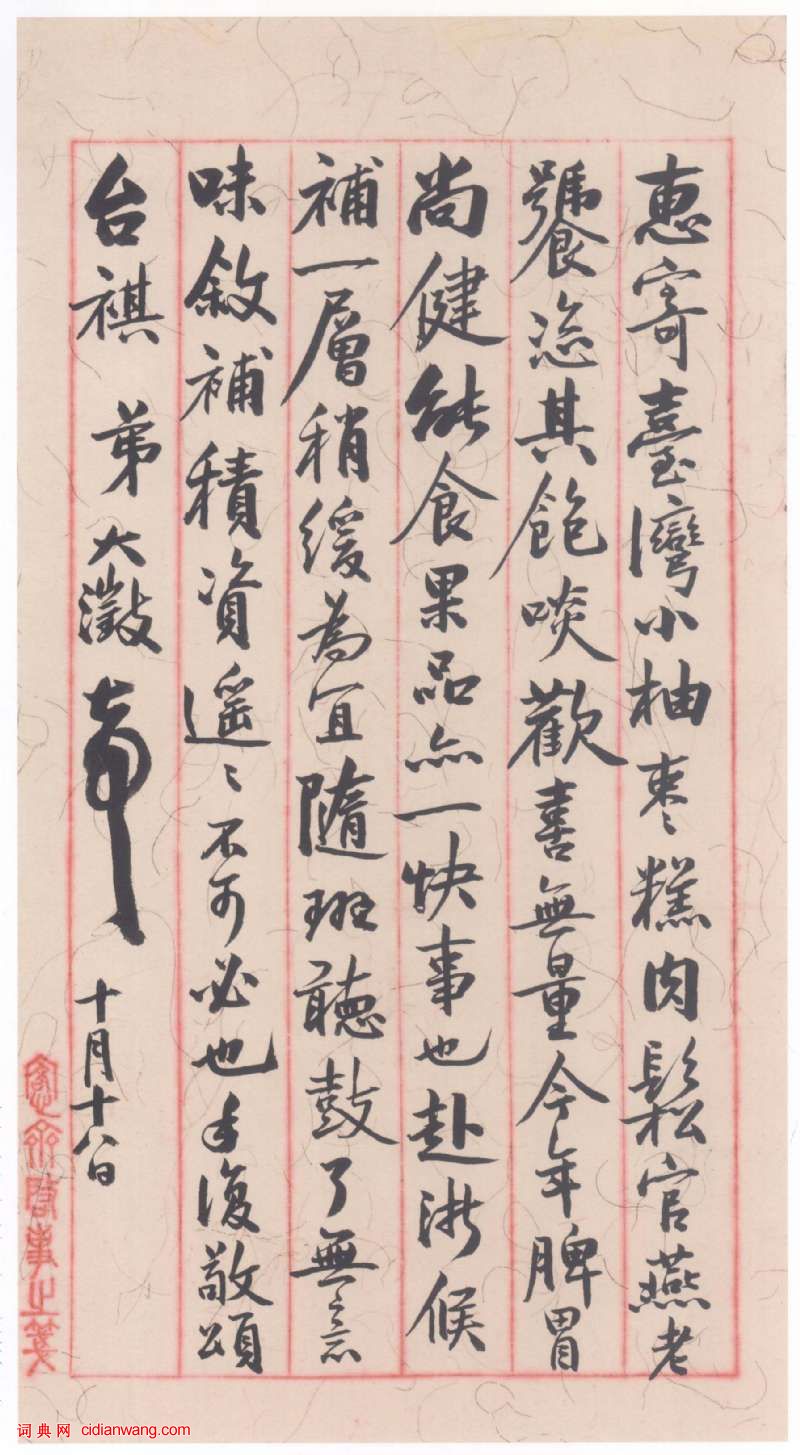 惠寄臺灣小柚棗糕肉鬆官燕老
饕恣其飽啖歡喜無量今年脾胃
尚健能食果品亦一快事也赴浙候
補一層稍緩為宜隨班聽鼓了無意
味敘補積資遥遥不可必也手復敬頌
台祺 弟大澂
十月十八日
愙齋啓事之箋
词典网 cidianwang.com